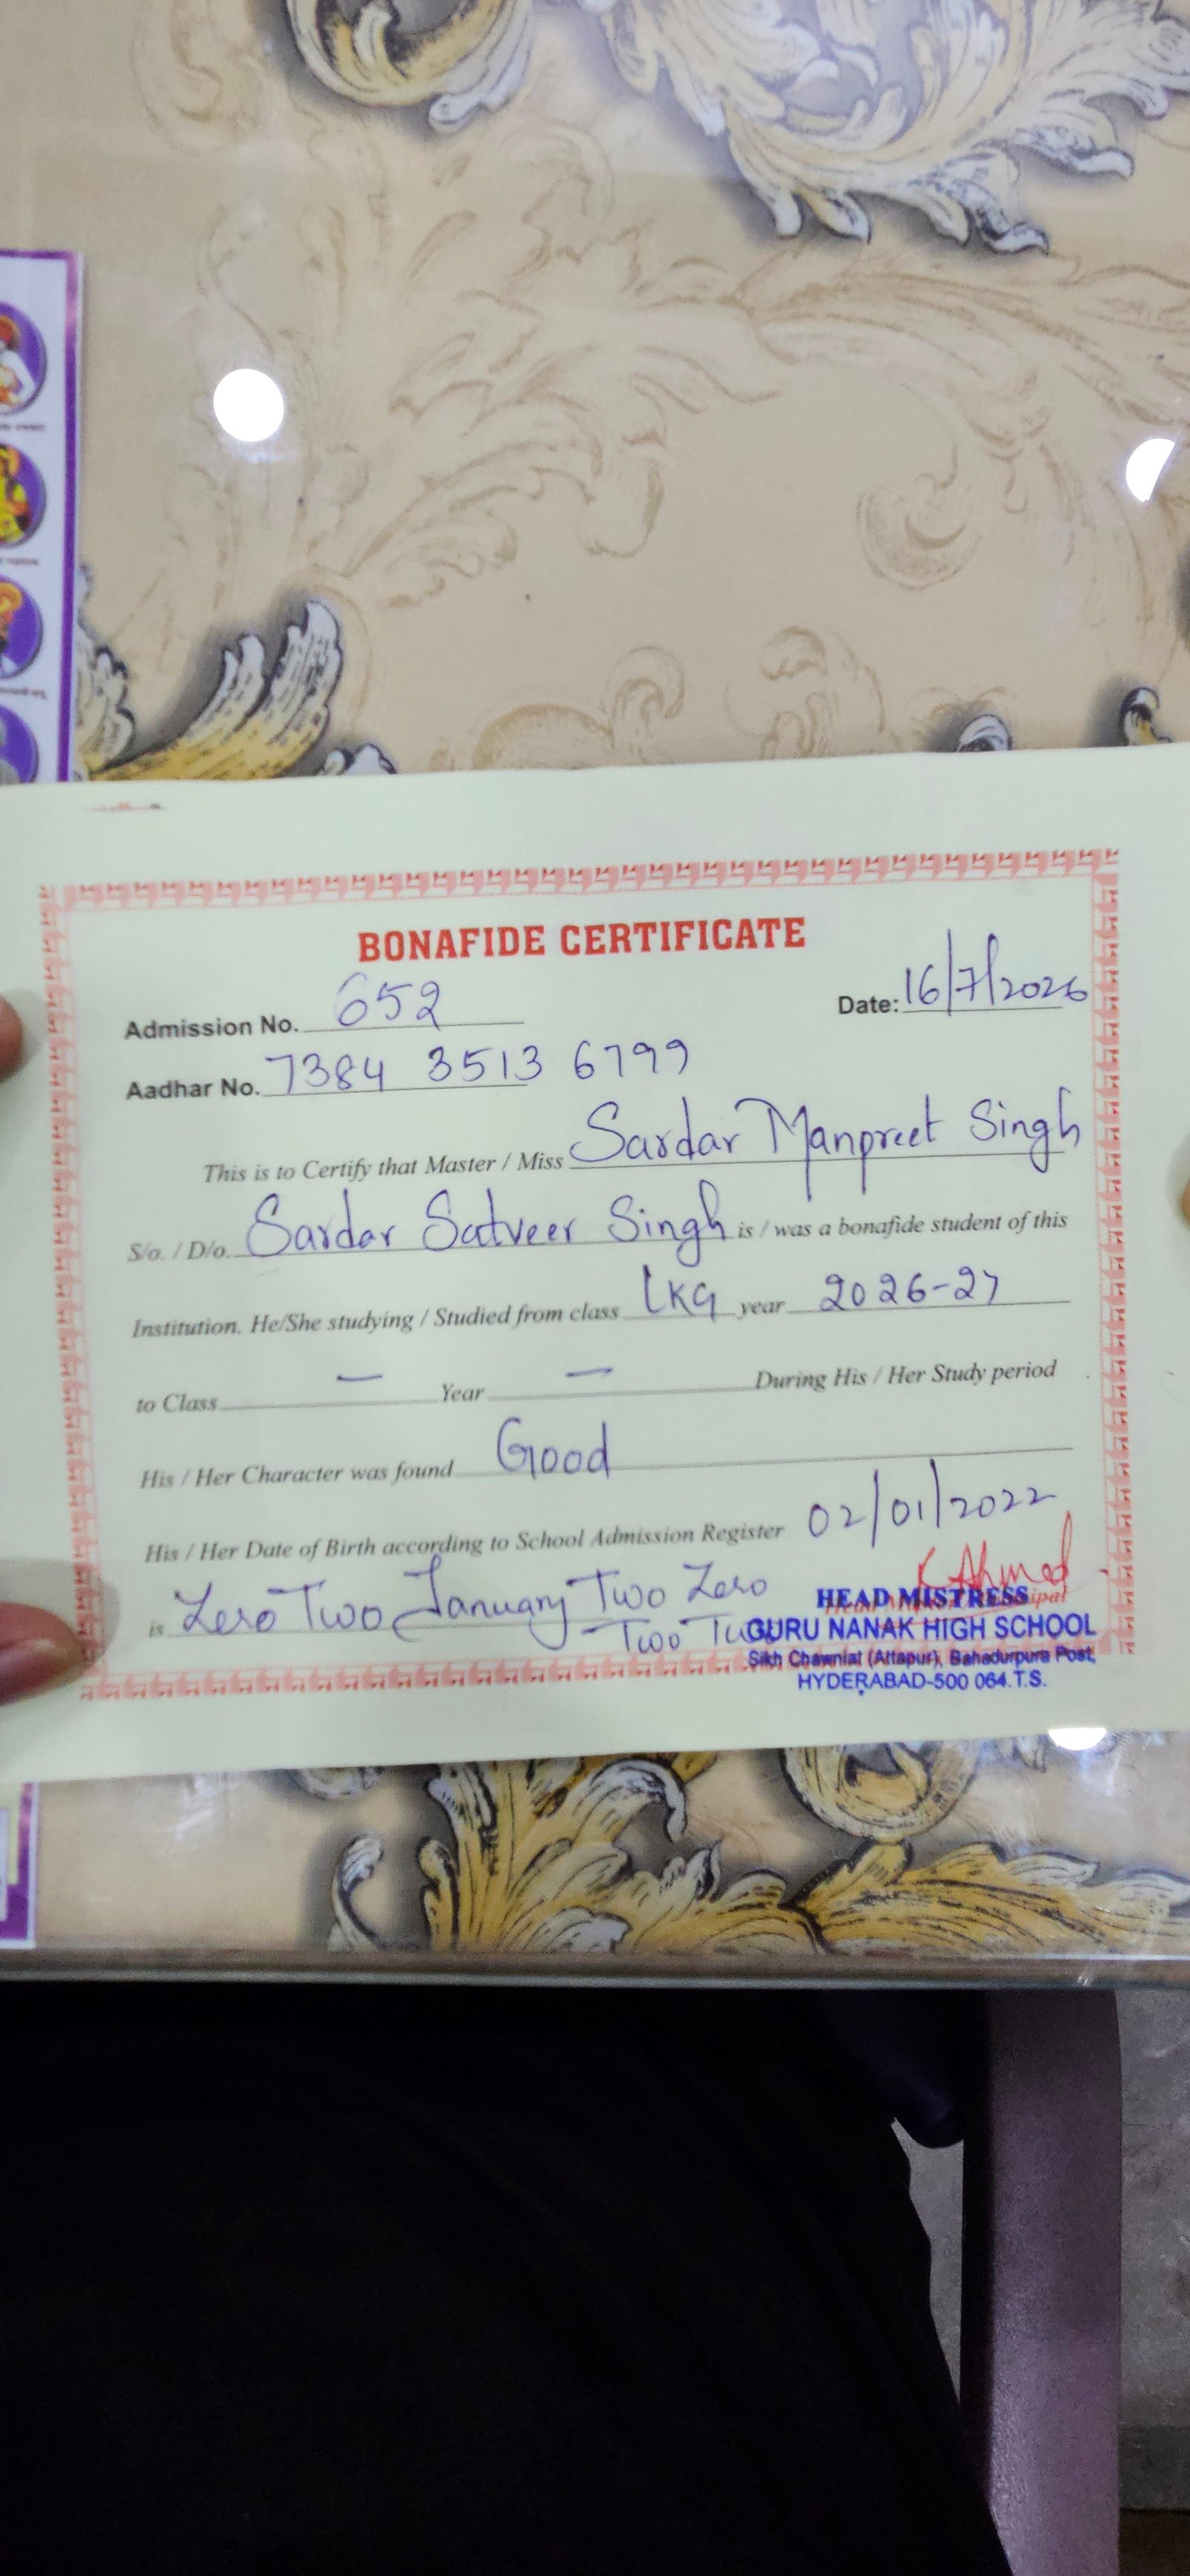 BONAFIDE CERTIFICATE
Admission No. 652 Date: 16/7/2026
Aadhar No. 7384 3513 6799
This is to Certify that Master / Miss Sardar Manpreet Singh
S/o. / D/o. Sardar Satveer Singh is / was a bonafide student of this
Institution. He/She studying / Studied from class LKG year 2026-27
to Class — Year — During His / Her Study period
His / Her Character was found Good
His / Her Date of Birth according to School Admission Register 02/01/2022
is Zero Two January Two Zero
Two Two
K. Ahmed
HEAD MISTRESS
GURU NANAK HIGH SCHOOL
Sikh Chawniat (Attapur), Bahadurpura Post,
HYDERABAD-500 064.T.S.